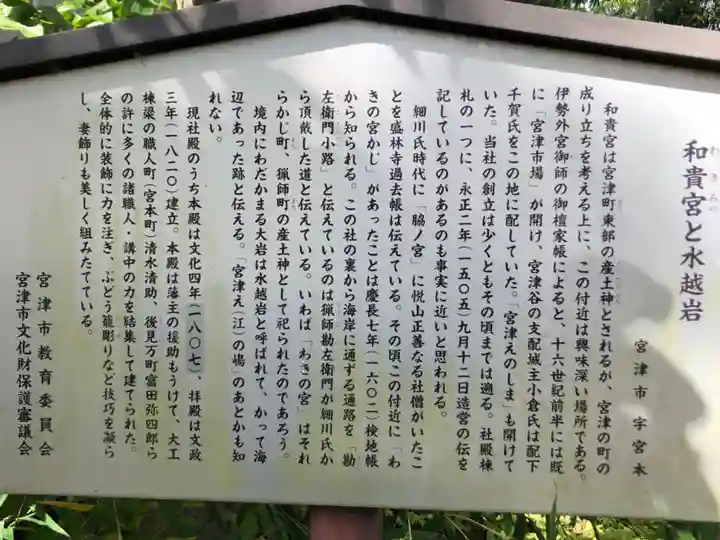 和貴宮と水越岩
わきみや
宮津市 字宮本
和貴宮は宮津町東部の産土神とされるが、宮津の町の
成り立ちを考える上に、この付近は興味深い場所である。
伊勢外宮御師の御檀家帳によると、十六世紀前半には既
に「宮津市場」が開け、宮津谷の支配城主小倉氏は配下
千賀氏をこの地に配していた。「宮津えのしま」も開けて
いた。当社の創立は少くともその頃までは遡る。社殿棟
札の一つに、永正二年（一五〇五）九月十二日造営の伝を
記しているのがあるのも事実に近いと思われる。
細川氏時代に「脇ノ宮」に悦山正善なる社僧がいたこ
とを盛林寺過去帳は伝えている。その頃この付近に「わ
きの宮かじ」があったことは慶長七年（一六〇二）検地帳
から知られる。この社の裏から海岸に通ずる通路を「勘
左衛門小路」と伝えているのは猟師勘左衛門が細川氏か
ら頂戴した道と伝えている。いわば「わきの宮」はそれ
らかじ町、猟師町の産土神として祀られたのであろう。
境内にわだかまる大岩は水越岩と呼ばれて、かって海
辺であった跡と伝える。「宮津え（江）の嶋」のあとかも知
れない。
現社殿のうち本殿は文化四年（一八〇七）、拝殿は文政
三年（一八二〇）建立。本殿は藩主の援助もうけて、大工
棟梁の職人町（宮本町）清水清助、後見万町冨田弥四郎ら
の許に多くの諸職人・講中の力を結集して建てられた。
全体的に装飾に力を注ぎ、ぶどう籠彫りなど技巧を凝ら
し、妻飾りも美しく組みたてている。
宮津市教育委員会
宮津市文化財保護審議会